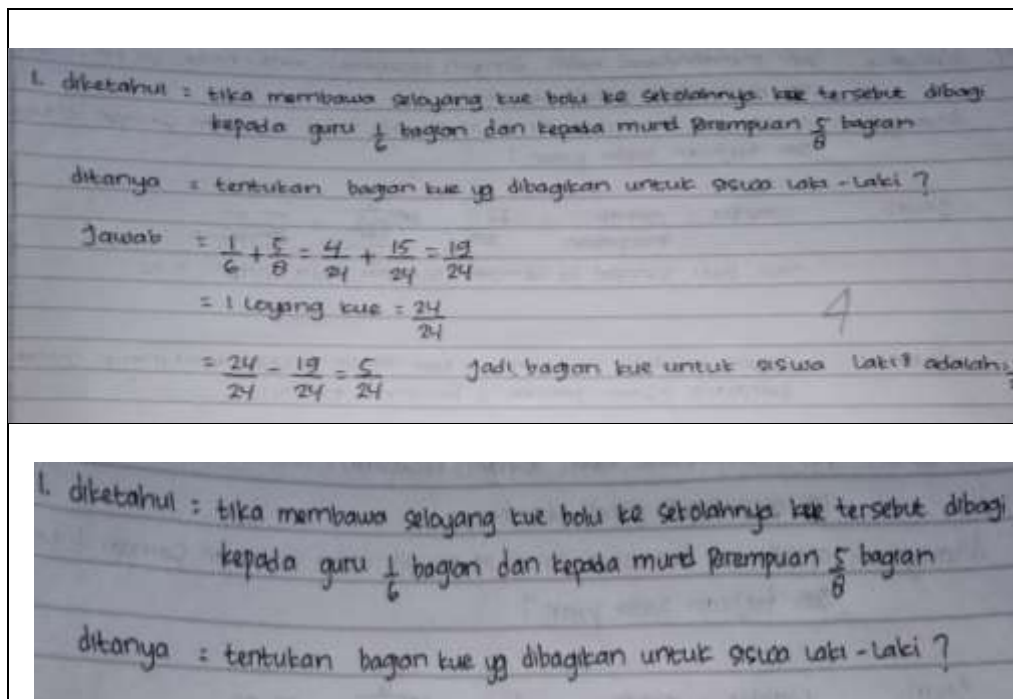 1. diketahui = tika membawa seloyang kue bolu ke sekolahnya. kue tersebut dibagi
kepada guru 1/6 bagian dan kepada murid perempuan 5/8 bagian
ditanya = tentukan bagian kue yg dibagikan untuk siswa laki-laki ?
Jawab = 1/6 + 5/8 = 4/24 + 15/24 = 19/24
= 1 loyang kue = 24/24
4
= 24/24 - 19/24 = 5/24 Jadi, bagian kue untuk siswa laki² adalah
1. diketahui : tika membawa seloyang kue bolu ke sekolahnya kue tersebut dibagi
kepada guru 1/6 bagian dan kepada murid perempuan 5/8 bagian
ditanya : tentukan bagian kue yg dibagikan untuk siswa laki-laki ?